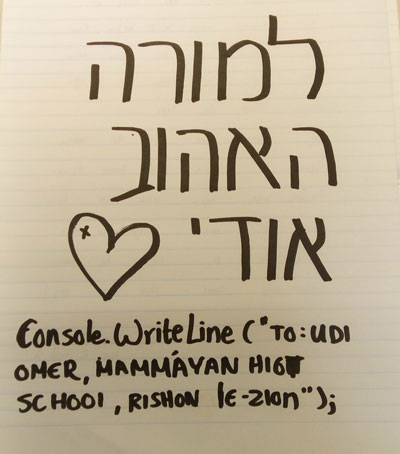 למורה
האהוב
אודי
Console.WriteLine ("TO: UDI
OMER, MAMMÁYAN HIGH
SCHOOl, RISHON le-ZION");